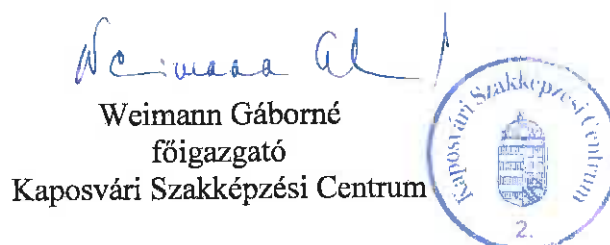 Weimann Gáborné
főigazgató
Kaposvári Szakképzési Centrum
Kaposvári Szakképzési Centrum
2.